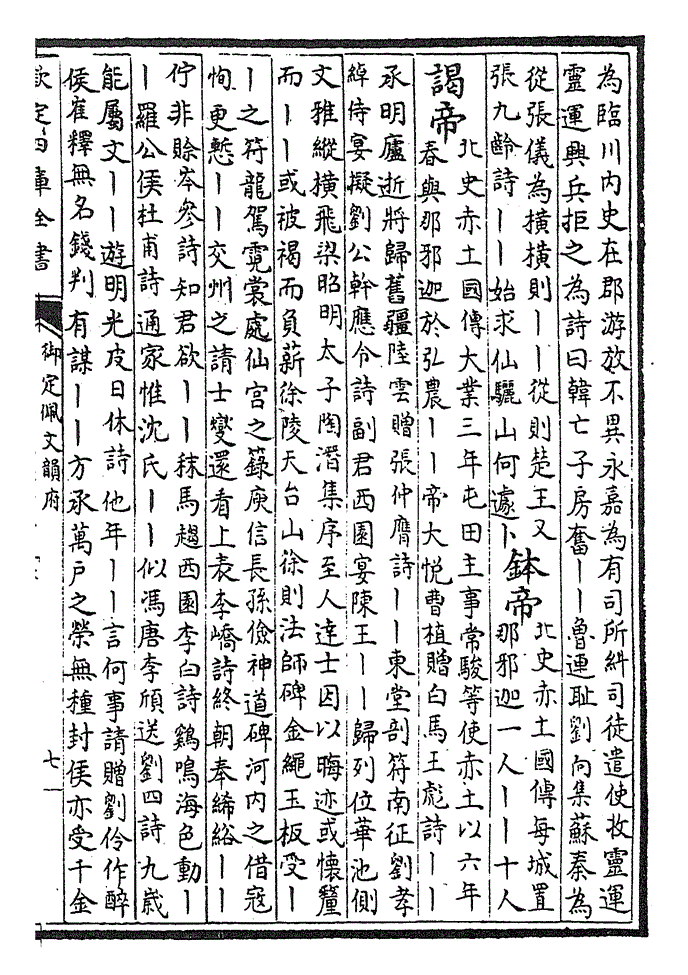 為臨川內史在郡游放不異永嘉為有司所糾司徒遣使收靈運
靈運興兵拒之為詩曰韓亡子房奮丨丨魯連耻劉向集蘇秦為
從張儀為橫橫則丨丨從則楚王又
張九齡詩丨丨始求仙驪山何遽卜
鉢帝
北史赤土國傳每城置
那邪迦一人丨丨十人
謁帝
北史赤土國傳大業三年屯田主事常駿等使赤土以六年
春與那邪迦於弘農丨丨帝大悦曹植贈白馬王彪詩丨丨
承明廬逝將歸舊疆陸雲贈張仲膺詩丨丨東堂剖符南征劉孝
綽侍宴擬劉公幹應令詩副君西園宴陳王丨丨歸列位華池側
文雅縱橫飛梁昭明太子陶潛集序至人達士因以晦迹或懷釐
而丨丨或被褐而負薪徐陵天台山徐則法師碑金繩玉板受丨
丨之符龍駕霓裳處仙宮之籙庾信長孫儉神道碑河內之借寇
恂更慙丨丨交州之請士燮還看上表李嶠詩終朝奉絺綌丨丨
佇非賒岑參詩知君欲丨丨秣馬趨西園李白詩鷄鳴海色動丨
丨羅公侯杜甫詩通家惟沈氏丨丨似馮唐李頎送劉四詩九歲
能屬文丨丨遊明光皮日休詩他年丨丨言何事請贈劉伶作醉
侯崔釋無名錢判有謀丨丨方承萬戶之榮無種封侯亦受千金
欽定四庫全書
御定佩文韻府
七一